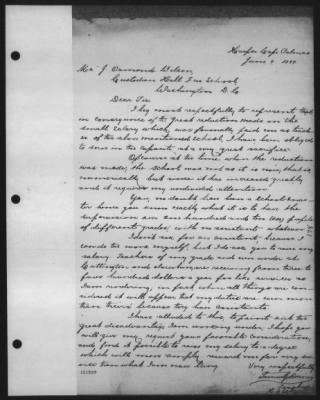 Harper
June 9
Mr J. Ormond Wilson
Custodian Free School
Washington D. C.
Dear Sir
I beg most respectfully to represent that
in consequence of the great reduction made on the
small salary which was formerly paid me as teach
er of the above mentioned school, I have been obliged
to serve in the capacity at a very great sacrifice.
Of course at the time when the reduction
was made, the school was not as it is now, that is,
numerically, but now it has increased greatly
and it requires my undivided attention.
You, no doubt, have been a school
hence you know exactly what it is to have the
supervision one hundred and ten pupils
of different grades, with no assistant whatever.
I don't ask for an assistant because I
can do the work myself, but I do ask you to raise my
salary. Teachers of my grade and even under at
and elsewhere receiving from three to
five hundred dollars a year for like services as
I am rendering, in fact when all things are con
sidered it will appear that my duties are even more
than theirs because they have assistants.
I have alluded to this, to point out the
great disadvantage I am working under. I hope you
will give my request your favorable consideration,
and find it possible to raise my salary to a degree
which will more amply reward me for my
than what I am now
Very respectfully